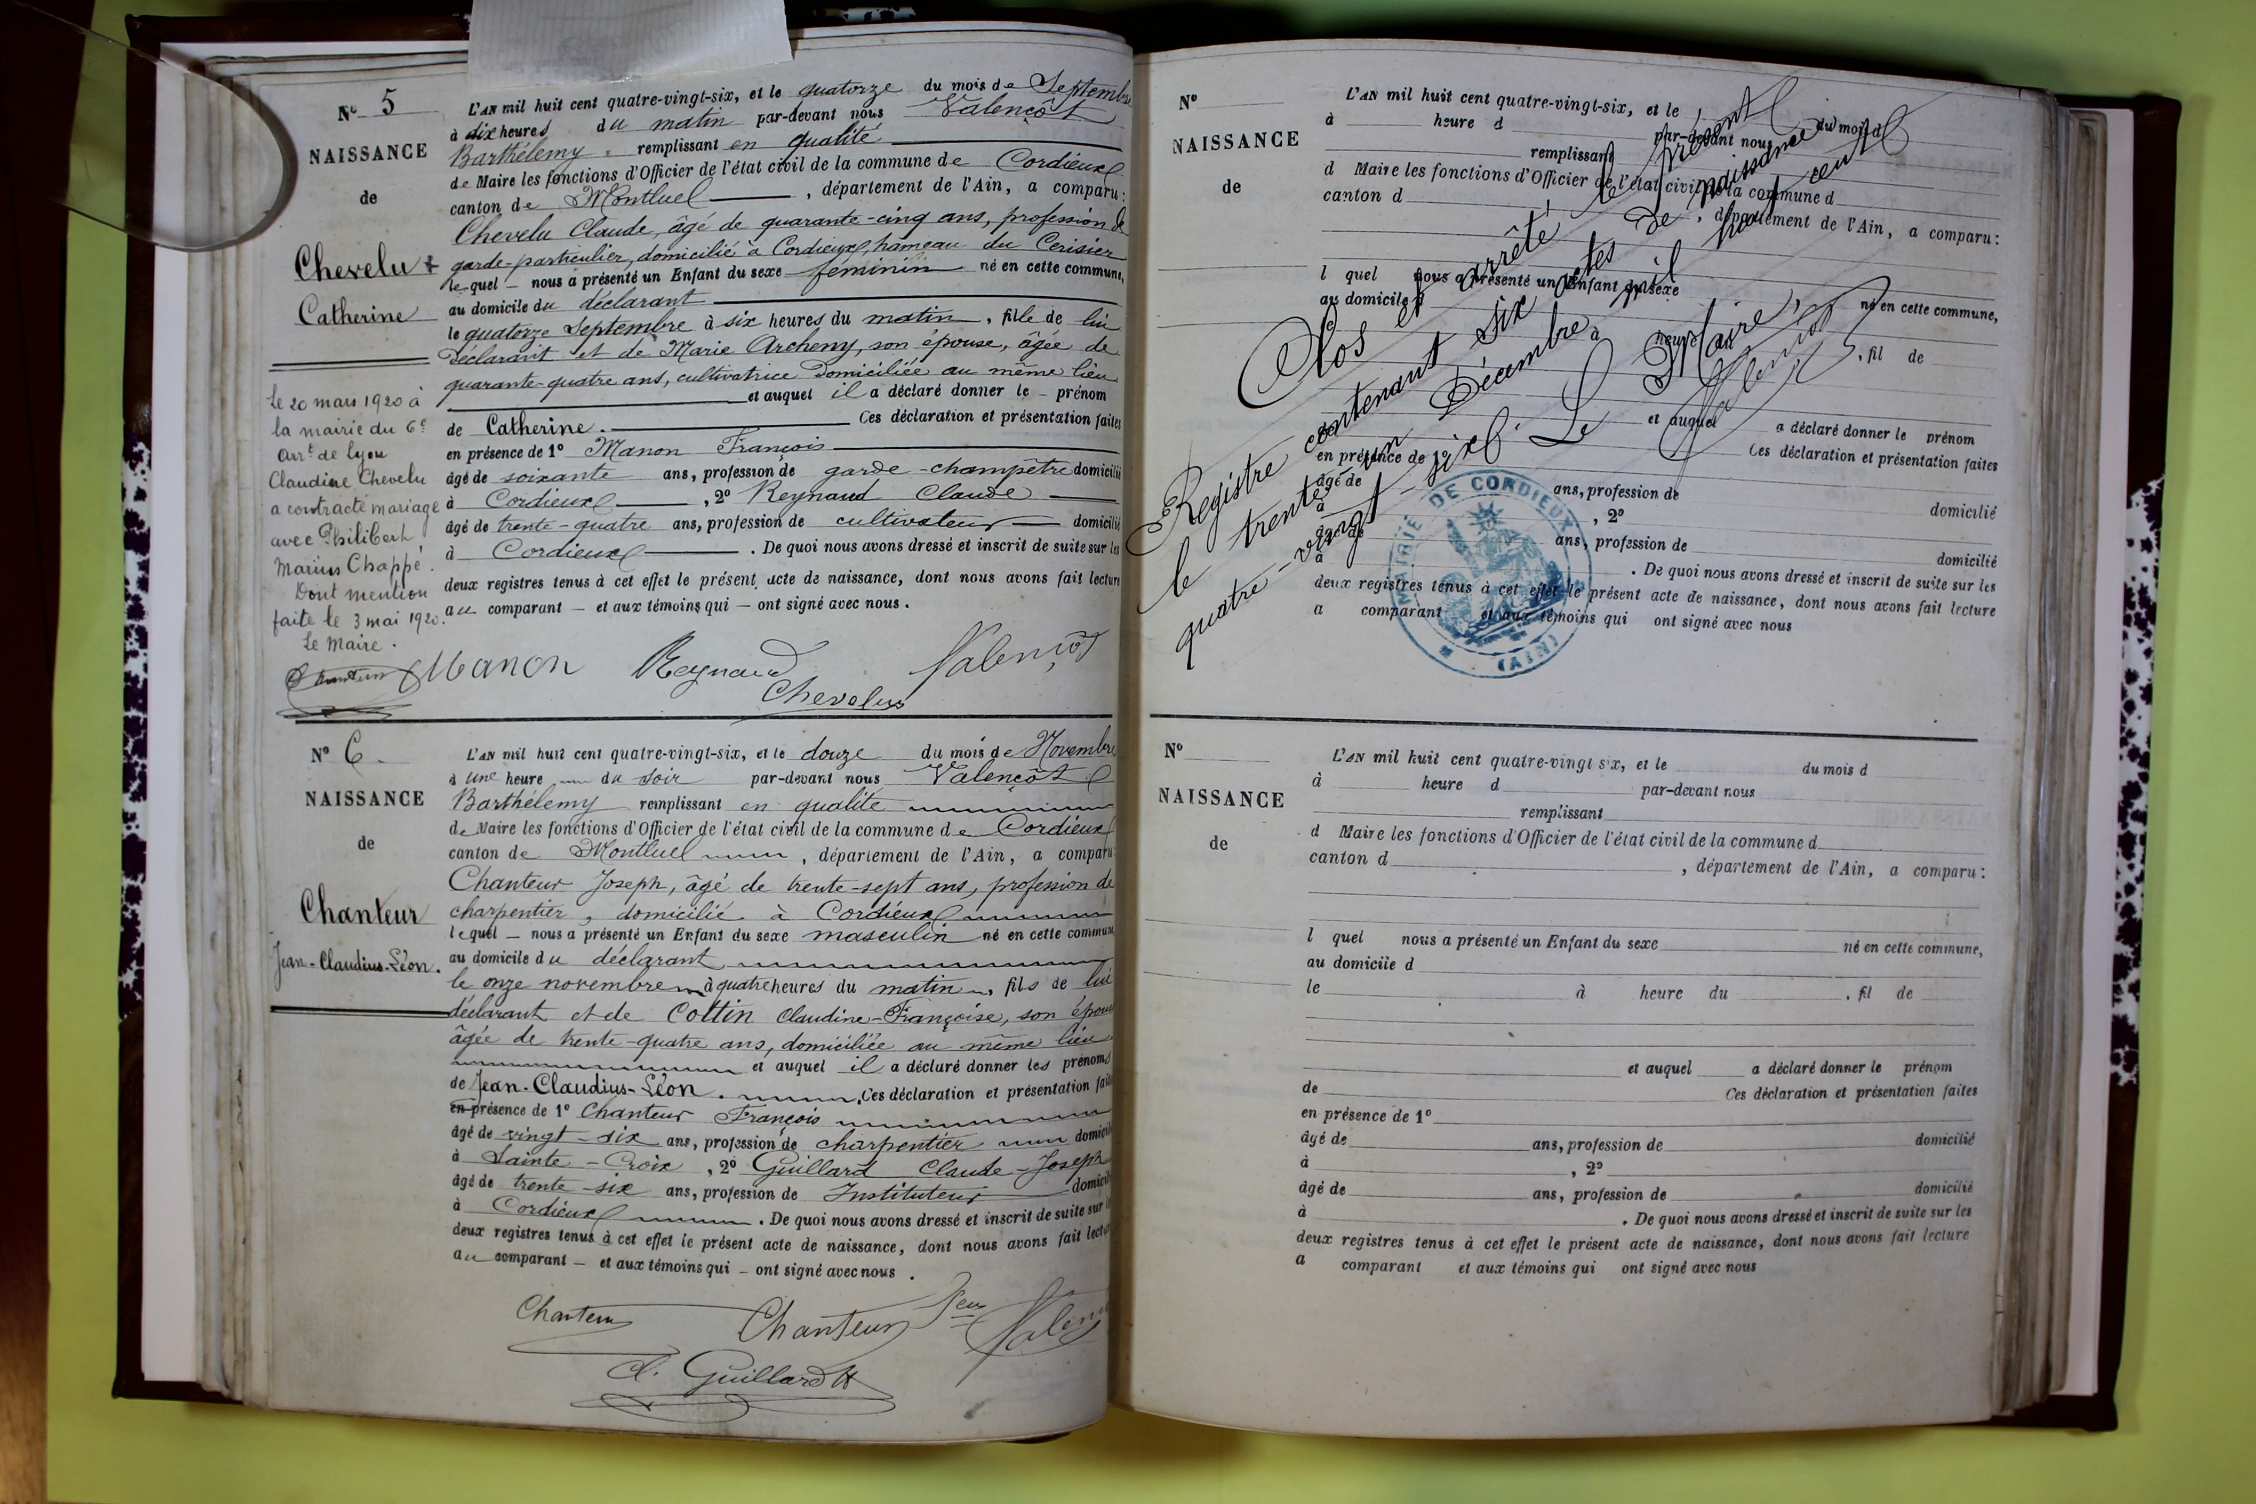 N° 5
NAISSANCE
de
Chevelu
Catherine
Le 20 mars 1920 à
la mairie du 6e
arrt de Lyon
Claudine Chevelu
a contracté mariage
avec Philibert
Marius Chappé.
Dont mention
faite le 3 mai 1920.
Le Maire.
L'AN mil huit cent quatre-vingt-six, et le quatorze du mois de Septembre
à dix heures du matin par-devant nous Valençôt
Barthélemy remplissant en qualité
de Maire les fonctions d'Officier de l'état civil de la commune de Cordieux
canton de Montluel, département de l'Ain, a comparu:
Chevelu Claude, âgé de quarante-cinq ans, profession de
garde-particulier, domicilié à Cordieux, hameau du Cerisier
lequel — nous a présenté un Enfant du sexe féminin né en cette commune,
au domicile du déclarant
le quatorze Septembre à six heures du matin, fille de lui
déclarant et de Marie Archeny, son épouse, âgée de
quarante-quatre ans, cultivatrice domiciliée au même lieu
et auquel il a déclaré donner le prénom
de Catherine. Ces déclaration et présentation faites
en présence de 1° Manon François
âgé de soixante ans, profession de garde-champêtre domicilié
à Cordieux, 2° Reynaud Claude
âgé de trente-quatre ans, profession de cultivateur domicilié
à Cordieux. De quoi nous avons dressé et inscrit de suite sur les
deux registres tenus à cet effet le présent acte de naissance, dont nous avons fait lecture
au comparant — et aux témoins qui — ont signé avec nous.
Manon Reynaud Valençôt
Chevelu
N° 6.
NAISSANCE
de
Chanteur
Jean-Claudius-Léon.
L'AN mil huit cent quatre-vingt-six, et le douze du mois de Novembre
à une heure du soir par-devant nous Valençôt
Barthélemy remplissant en qualité
de Maire les fonctions d'Officier de l'état civil de la commune de Cordieux
canton de Montluel, département de l'Ain, a comparu
Chanteur Joseph, âgé de trente-sept ans, profession de
charpentier, domicilié à Cordieux
lequel — nous a présenté un Enfant du sexe masculin né en cette commune
au domicile du déclarant
le onze novembre à quatre heures du matin, fils de lui
déclarant et de Cottin Claudine-Françoise, son épouse
âgée de trente-quatre ans, domiciliée au même lieu
et auquel il a déclaré donner les prénoms
de Jean-Claudius-Léon. Ces déclaration et présentation faites
en présence de 1° Chanteur François
âgé de vingt-six ans, profession de charpentier domicilié
à Sainte-Croix, 2° Guillard Claude-Joseph
âgé de trente-six ans, profession de Instituteur domicilié
à Cordieux. De quoi nous avons dressé et inscrit de suite sur les
deux registres tenus à cet effet le présent acte de naissance, dont nous avons fait lecture
au comparant — et aux témoins qui — ont signé avec nous.
Chanteur Chanteur Valençôt
Cl. Guillard
N°
NAISSANCE
de
L'AN mil huit cent quatre-vingt-six, et le du mois d
à heure d par-devant nous
remplissant
d Maire les fonctions d'Officier de l'état civil de la commune d
canton d , département de l'Ain, a comparu:
l quel nous a présenté un Enfant du sexe né en cette commune,
au domicile d
à heure , fil de
et auquel a déclaré donner le prénom
Ces déclaration et présentation faites
en présence de
âgé de ans, profession de domicilié
à , 2°
âgé de ans, profession de domicilié
à . De quoi nous avons dressé et inscrit de suite sur les
deux registres tenus à cet effet le présent acte de naissance, dont nous avons fait lecture
a comparant et aux témoins qui ont signé avec nous
Clos et arrêté le présent
Registre contenant six actes de naissance
le trente-un Décembre mil huit cent
quatre-vingt-six. Le Maire,
Valençôt
MAIRIE DE CORDIEUX
(AIN)
N°
NAISSANCE
de
L'AN mil huit cent quatre-vingt six, et le du mois d
à heure d par-devant nous
remplissant
d Maire les fonctions d'Officier de l'état civil de la commune d
canton d , département de l'Ain, a comparu:
l quel nous a présenté un Enfant du sexe né en cette commune,
au domicile d
le à heure du , fil de
et auquel a déclaré donner le prénom
de Ces déclaration et présentation faites
en présence de 1°
âgé de ans, profession de domicilié
à , 2°
âgé de ans, profession de domicilié
à . De quoi nous avons dressé et inscrit de suite sur les
deux registres tenus à cet effet le présent acte de naissance, dont nous avons fait lecture
a comparant et aux témoins qui ont signé avec nous